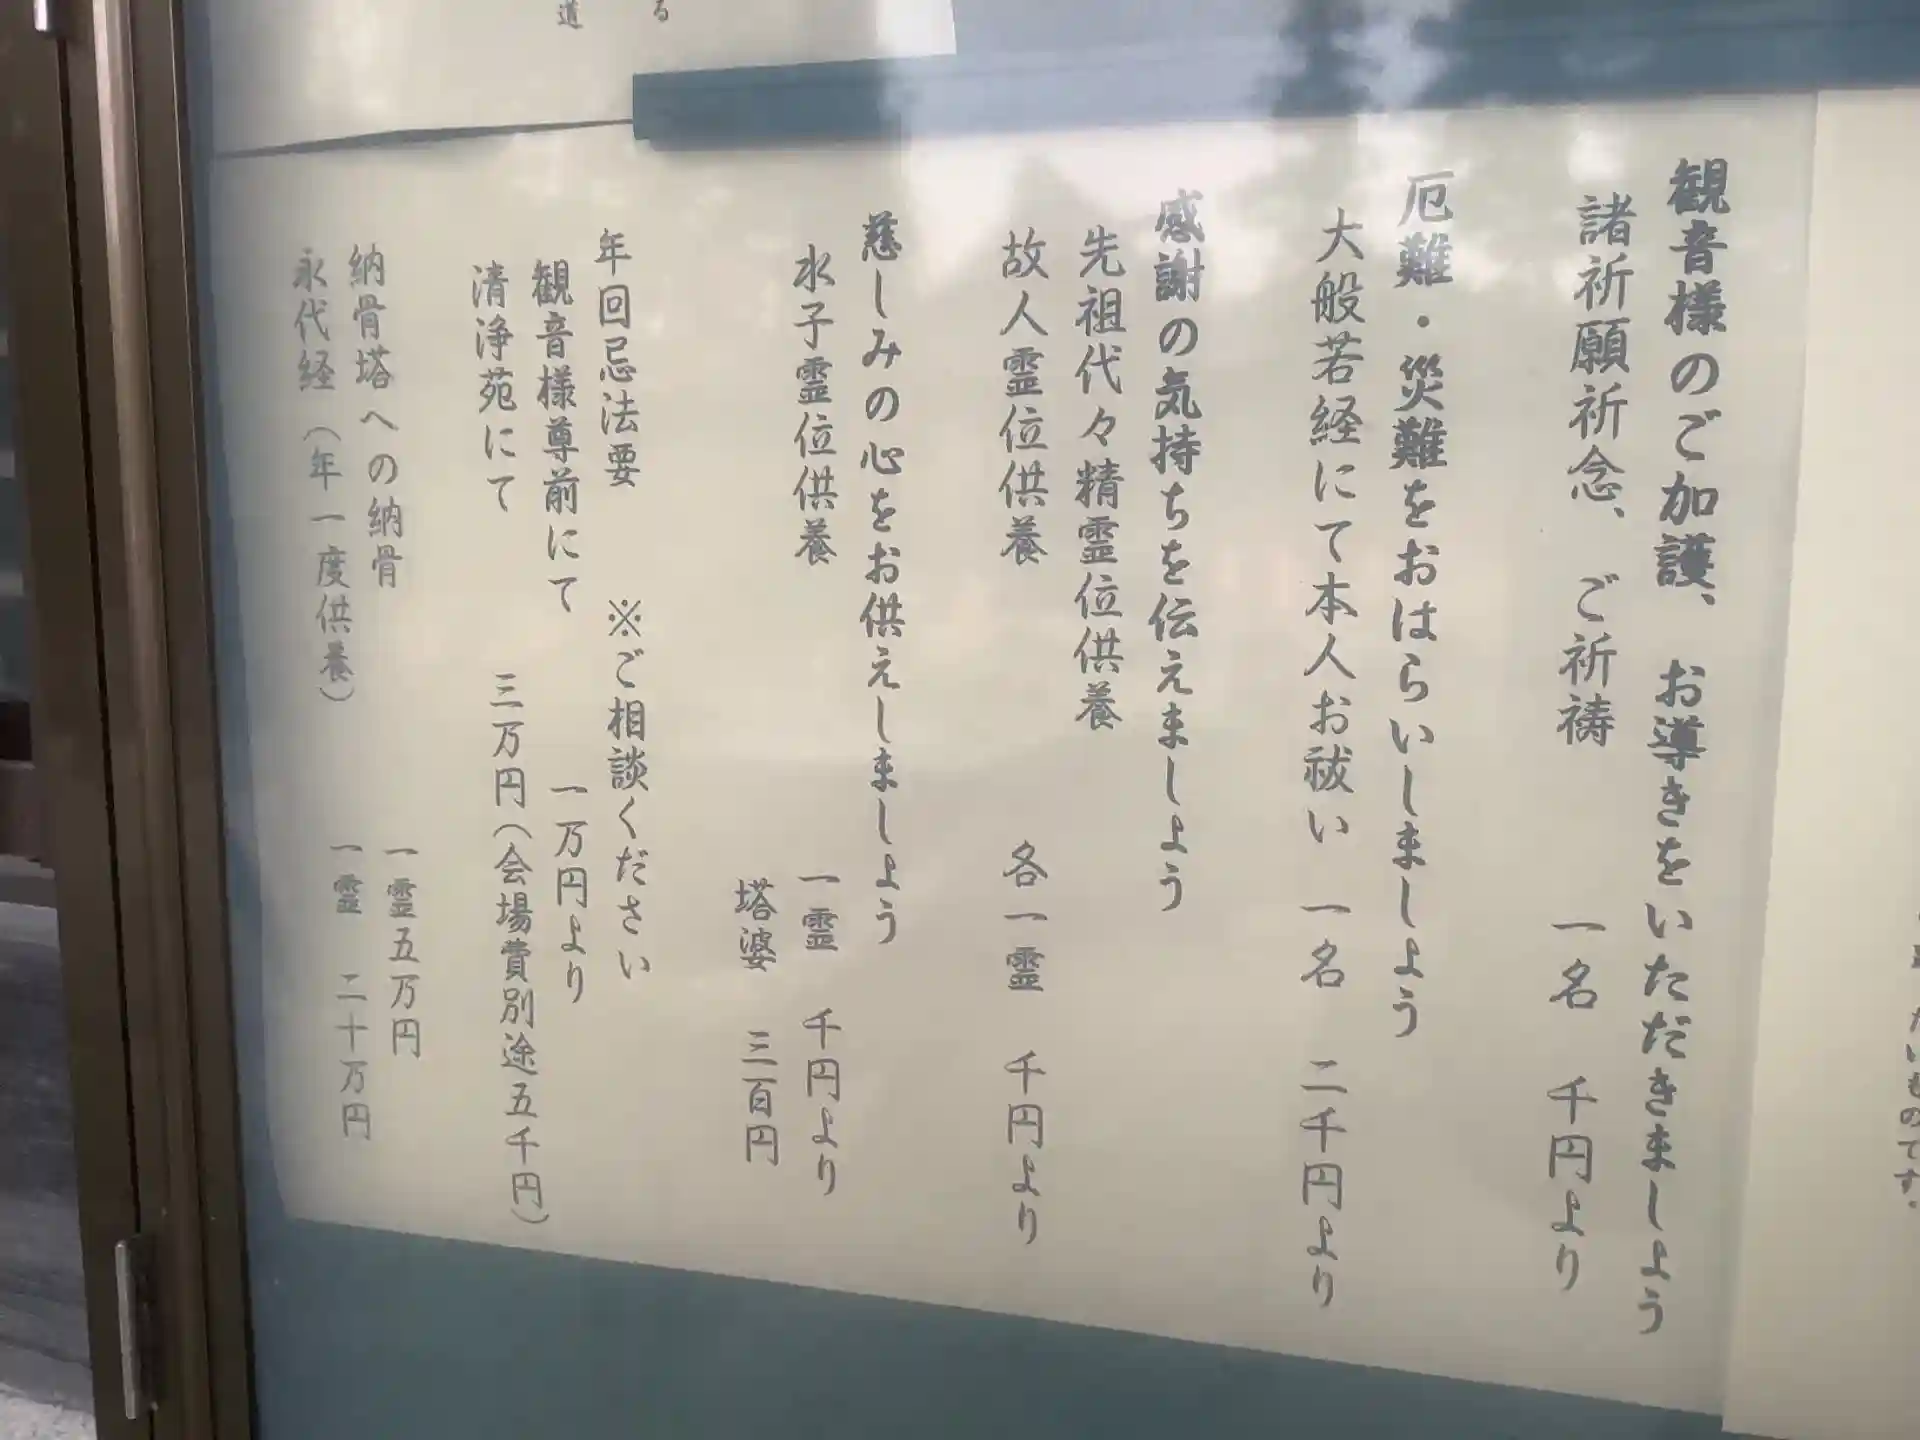 観音様のご加護、お導きをいただきましょう
諸祈願祈念、ご祈祷　一名　千円より
厄難・災難をおはらいしましょう
大般若経にて本人お祓い　一名　二千円より
感謝の気持ちを伝えましょう
先祖代々精霊位供養
故人霊位供養　各一霊　千円より
慈しみの心をお供えしましょう
水子霊位供養　一霊　千円より
塔婆　三百円
年回忌法要　※ご相談ください
観音様尊前にて　一万円より
清浄苑にて　三万円（会場費別途五千円）
納骨塔への納骨　一霊五万円
永代経（年一度供養）　一霊　二十万円
る
道
たいものです。